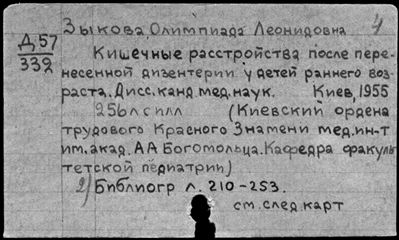 Зыкова, Олимпиада Леонидовна 4
Д 57
332
Кишечные расстройства после пере-
несенной дизентерии у детей раннего воз-
раста. Дисс. канд. мед. наук. Киев, 1955
256 л с илл (Киевский ордена
трудового Красного Знамени мед. ин-т
им. акад. АА Богомольца. Кафедра факуль
тетской педиатрии)
2) Библиогр л. 210-253.
см. след карт